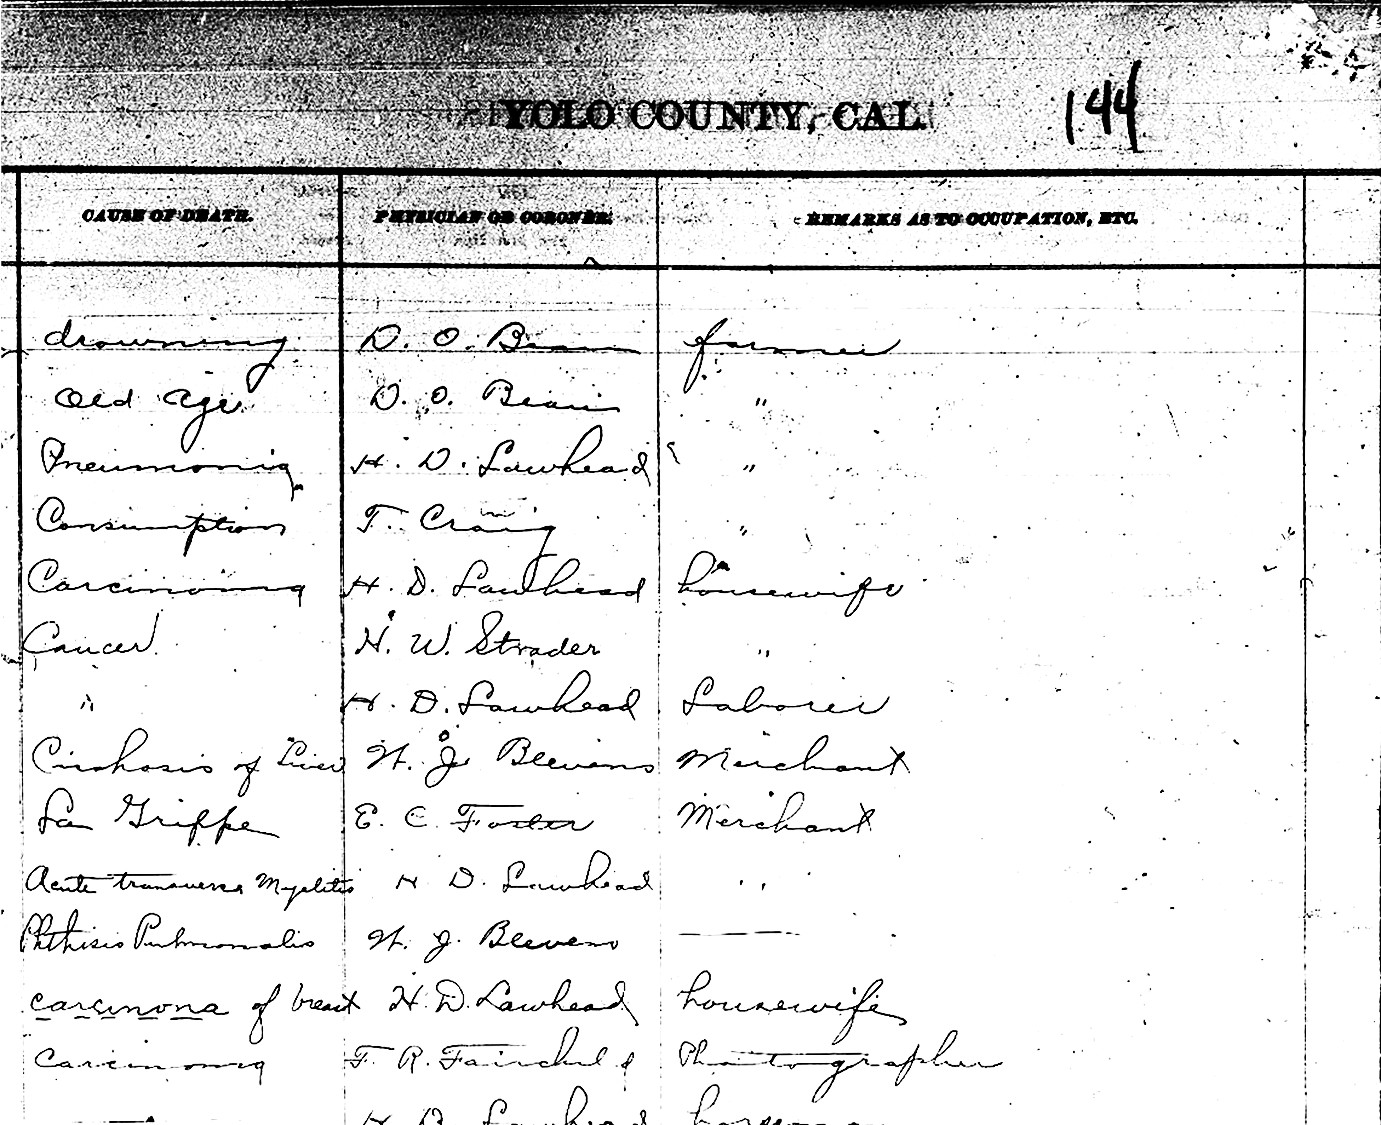 YOLO COUNTY, CAL. 144
CAUSE OF DEATH. PHYSICIAN OR CORONER. REMARKS AS TO OCCUPATION, ETC.
drowning D. O. Bean farmer
Old Age D. O. Bean "
Pneumonia H. D. Lawhead "
Consumption T. Craig "
Carcinoma H. D. Lawhead housewife
Cancer H. W. Strader "
" H. D. Lawhead Laborer
Cirrhosis of Liver W. J. Blevens Merchant
La Grippe E. C. Foster Merchant
Acute transverse Myelitis H D. Lawhead "
Phthisis Pulmonalis W. J. Blevens —
carcinona of breast H. D. Lawhead housewife
Carcinoma F. R. Fairchild Photographer
H D Lawhead